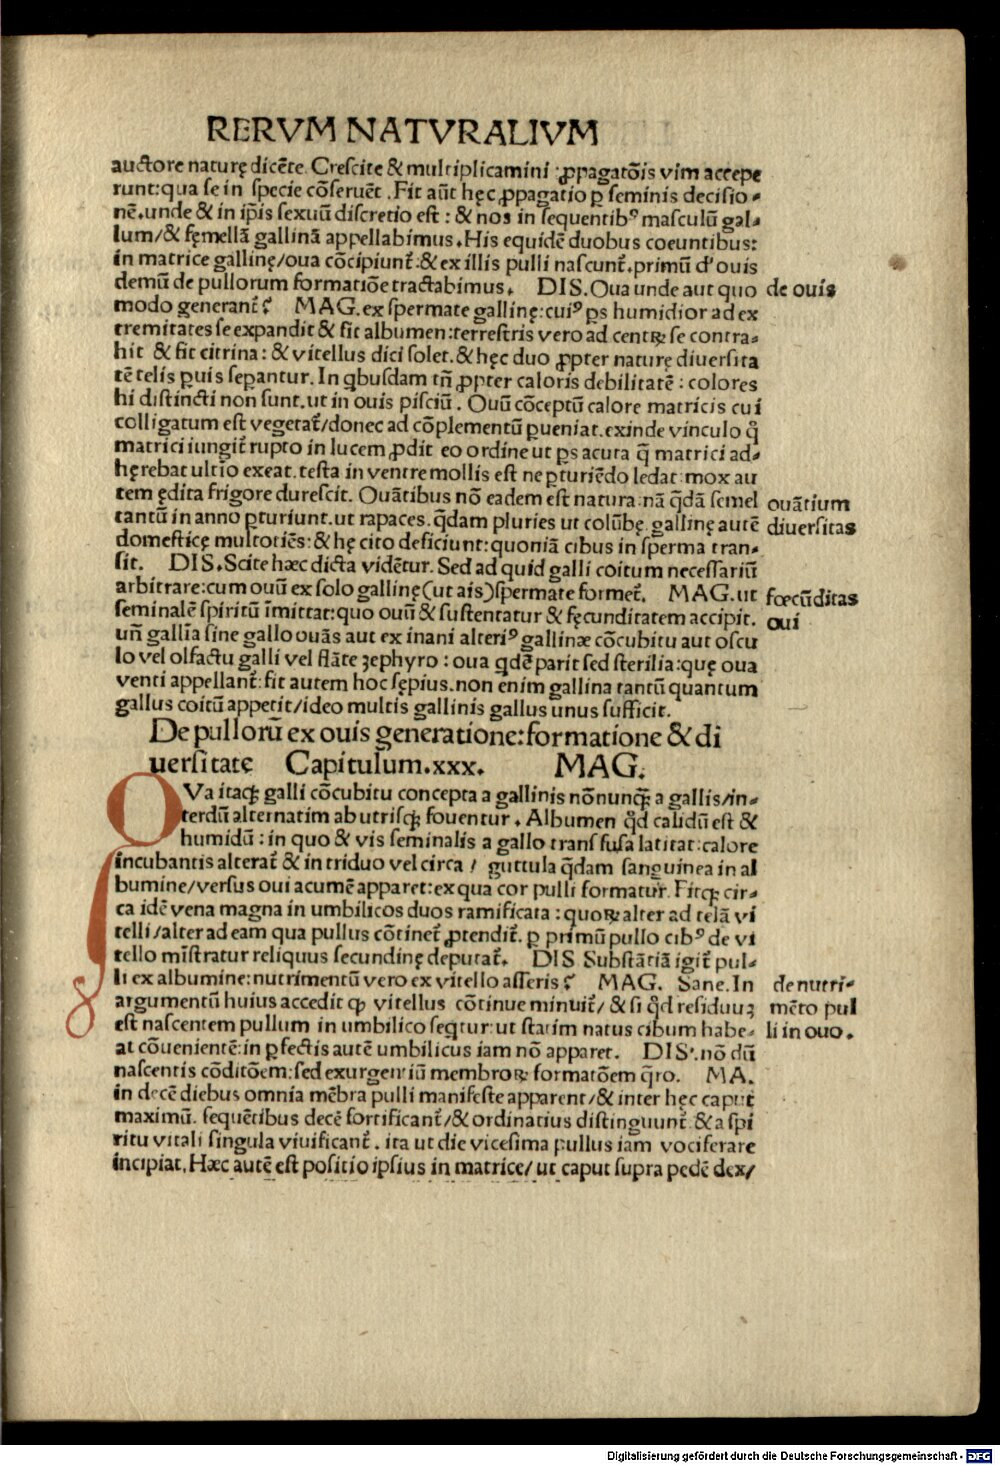 RERVM NATVRALIVM
auctore naturę dicēte. Crescite & multiplicamini : ꝓpagatōis vim accepe
runt: qua se in specie cōseruēt . Fit aūt hęc ꝓpagatio ꝑ seminis decisio-
nē. unde & in ip̄is sexuū discretio est : & nos in sequentibꝰ masculū gal-
lum/& fęmellā gallinā appellabimus. His equidē duobus coeuntibus:
in matrice gallinę/oua cōcipiunt᷑: & ex illis pulli nascunt᷑. primū d' ouis
demū de pullorum formatiōe tractabimus. DIS. Oua unde aut quo
de ouis
modo generant᷑? MAG. ex spermate gallinę: cuiꝰ ꝑs humidior ad ex
tremitates se expandit & fit albumen: terrestris vero ad centꝝ se contra-
hit & fit citrina: & vitellus dici solet. & hęc duo ꝓpter naturę diuersita
tē telis ꝑuis seꝑantur. In q̇busdam tñ ꝓpter caloris debilitatē : colores
hi distincti non sunt. ut in ouis pisciū. Ouū cōceptū calore matricis cui
colligatum est vegetat᷑/donec ad cōplementū ꝑueniat. exinde vinculo q̄
matrici iungit᷑ rupto in lucem ꝓdit eo ordine ut ꝑs acuta q̄ matrici ad-
hęrebat ultīo exeat. testa in ventre mollis est ne ꝑturiēdo ledat: mox au
tem ędita frigore durescit. Ouātibus nō eadem est natura: nā q̄dā semel
ouātium
tantū in anno ꝑturiunt. ut rapaces. q̄dam pluries ut colūbę. gallinę autē
diuersitas
domesticę multotiēs: & hę cito deficiunt: quoniā cibus in sperma tran-
sit. DIS. Scite hæc dicta vidētur. Sed ad quid galli coitum necessariū
arbitrare: cum ouū ex solo gallinę (ut ais) spermate formet᷑. MAG. ut
fœcūditas
seminalē spiritū īmittat: quo ouū & sustentatur & fęcunditatem accipit.
oui
uñ gallīa sine gallo ouās aut ex inani alteriꝰ gallinæ cōcubitu aut oscu
lo vel olfactu galli vel flāte zephyro : oua q̇dē parit sed sterilia: quę oua
venti appellant᷑: fit autem hoc sępius. non enim gallina tantū quantum
gallus coitū appetit/ideo multis gallinis gallus unus sufficit.
De pulloru᷑ ex ouis generatione: formatione & di
uersitate Capitulum .xxx. MAG.
OVa itaqꝫ galli cōcubitu concepta a gallinis nōnunqꝫ a gallis/in-
terdū alternatim ab utrisqꝫ fouentur. Albumen q̇d calidū est &
humidū : in quo & vis seminalis a gallo transfusa latitat: calore
incubantis alterat᷑ & in triduo vel circa / guttula q̄dam sanguinea in al
bumine/versus oui acumē apparet: ex qua cor pulli formatur. Fitqꝫ cir-
ca idē vena magna in umbilicos duos ramificata : quoꝝ alter ad telā vi
telli/alter ad eam qua pullus cōtinet᷑ ꝓtendit᷑. ꝑ primū pullo cibꝰ de vi
tello mīstratur reliquus secundinę deputat᷑. DIS Substātiā igit᷑ pul-
li ex albumine: nutrimentū vero ex vitello asseris? MAG. Sane. In
de nutri-
argumentū huius accedit ꝙ vitellus cōtinue minuit᷑/ & si q̇d residuuꝫ
mēto pul
est nascentem pullum in umbilico seqtur: ut statim natus cibum habe-
li in ouo.
at cōuenientē: in ꝑfectis autē umbilicus iam nō apparet. DIS. nō dū
nascentis cōditōem: sed exurgentiū membroꝝ formatōem q̄ro. MA.
in decē diebus omnia mēbra pulli manifeste apparent/& inter hęc caput
maximū. sequētibus decē fortificant᷑/& ordinatius distinguunt᷑. & a spi
ritu vitali singula viuificant᷑. ita ut die vicesima pullus iam vociferare
incipiat. Hæc autē est positio ipsius in matrice/ ut caput supra pedē dex/